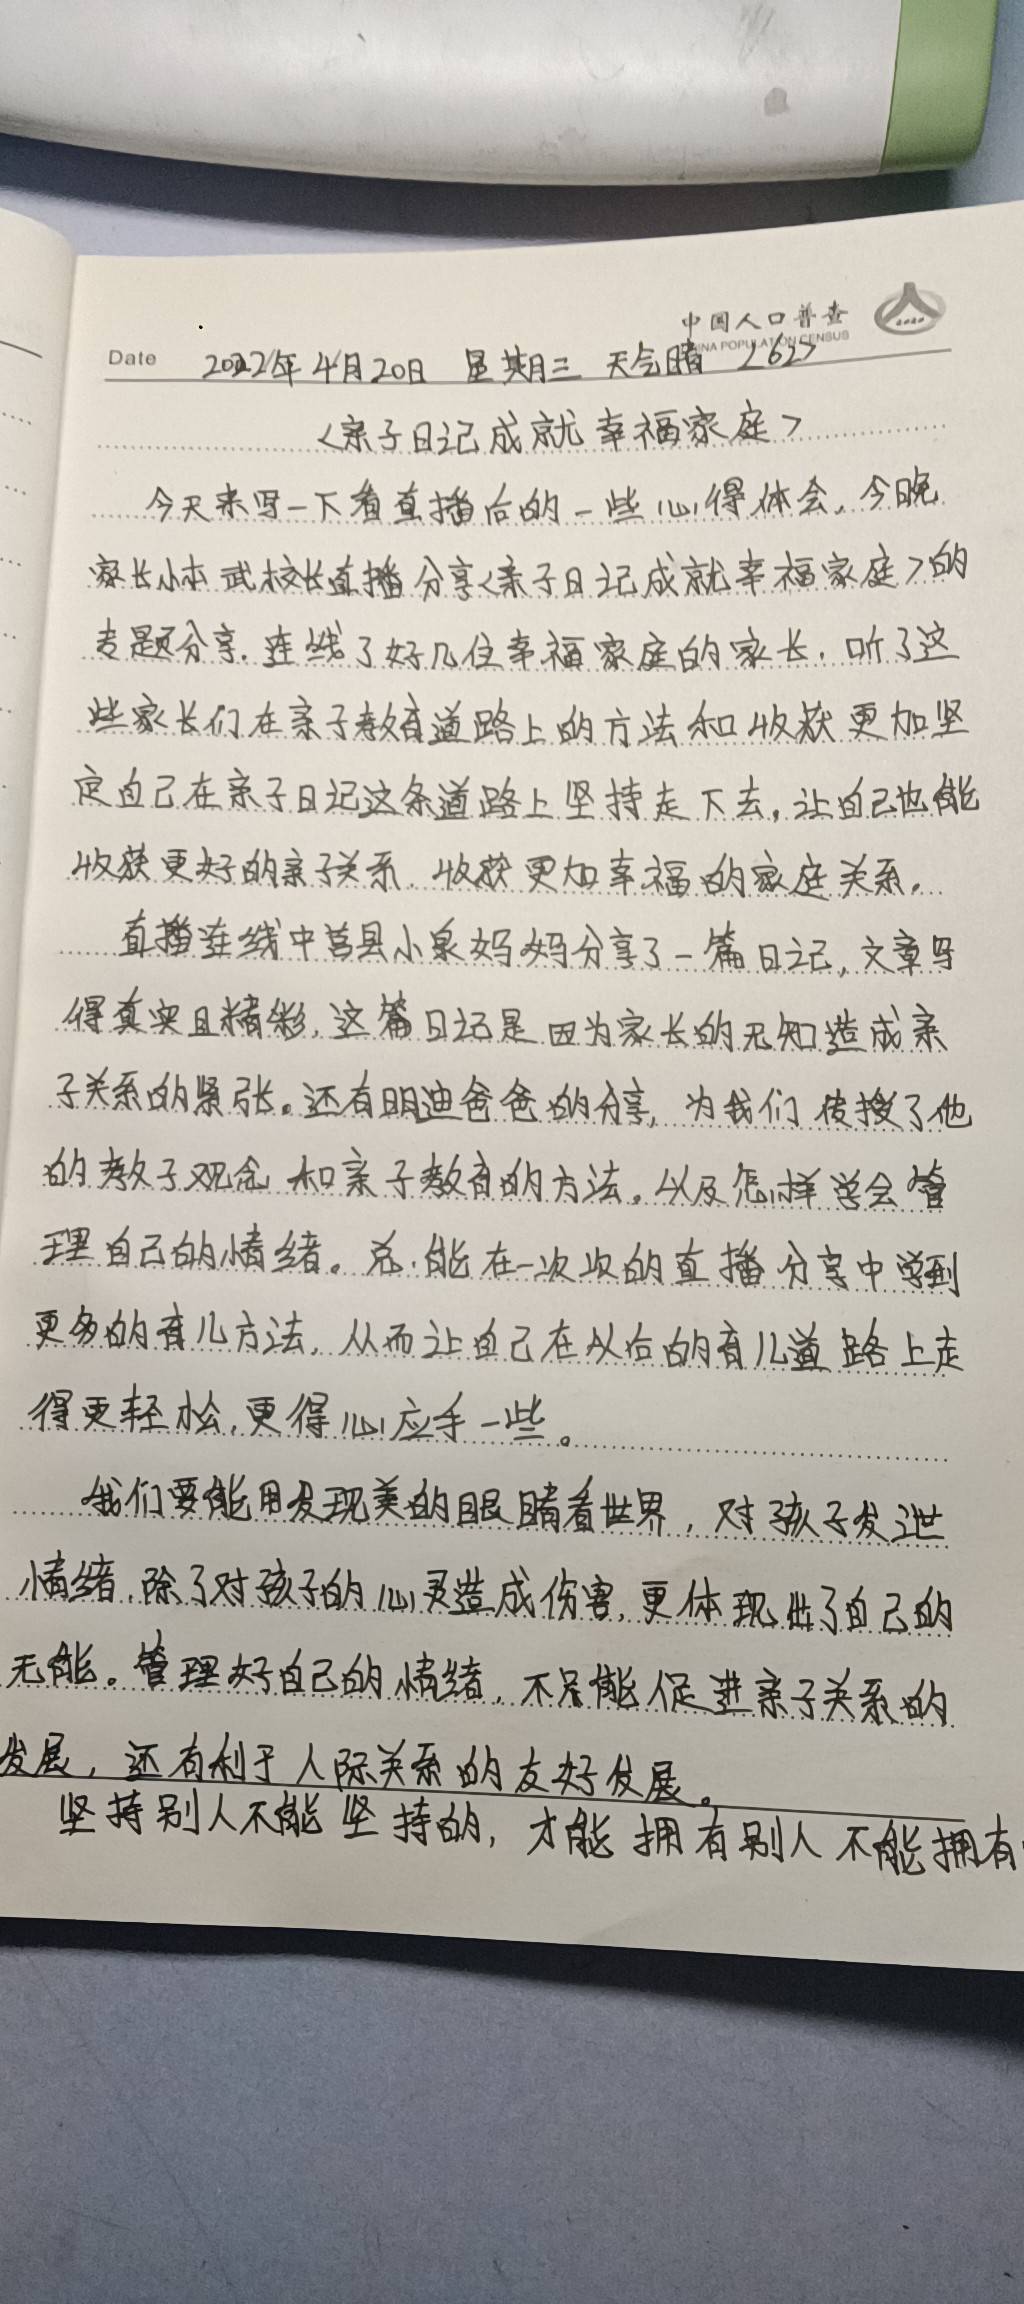 中国人口普查
CHINA POPULATION CENSUS
2020
Date 2022年4月20日 星期三 天气晴 <62>
<亲子日记成就幸福家庭>
今天来写一下看直播后的一些心得体会,今晚
家长小本武校长直播分享<亲子日记成就幸福家庭>的
专题分享.连线了好几位幸福家庭的家长,听了这
些家长们在亲子教育道路上的方法和收获更加坚
定自己在亲子日记这条道路上坚持走下去,让自己也能
收获更好的亲子关系.收获更加幸福的家庭关系。
直播连线中莒县小泉妈妈分享了一篇日记,文章写
得真实且精彩,这篇日记是因为家长的无知造成亲
子关系的紧张。还有明迪爸爸的分享,为我们传授了他
的教子观念和亲子教育的方法。以及怎样学会管
理自己的情绪。总能在一次次的直播分享中学到
更多的育儿方法,从而让自己在以后的育儿道路上走
得更轻松,更得心应手一些。
我们要能用发现美的眼睛看世界,对孩子发泄
情绪,除了对孩子的心灵造成伤害,更体现出了自己的
无能。管理好自己的情绪,不只能促进亲子关系的
发展,还有利于人际关系的友好发展。
坚持别人不能坚持的,才能拥有别人不能拥有